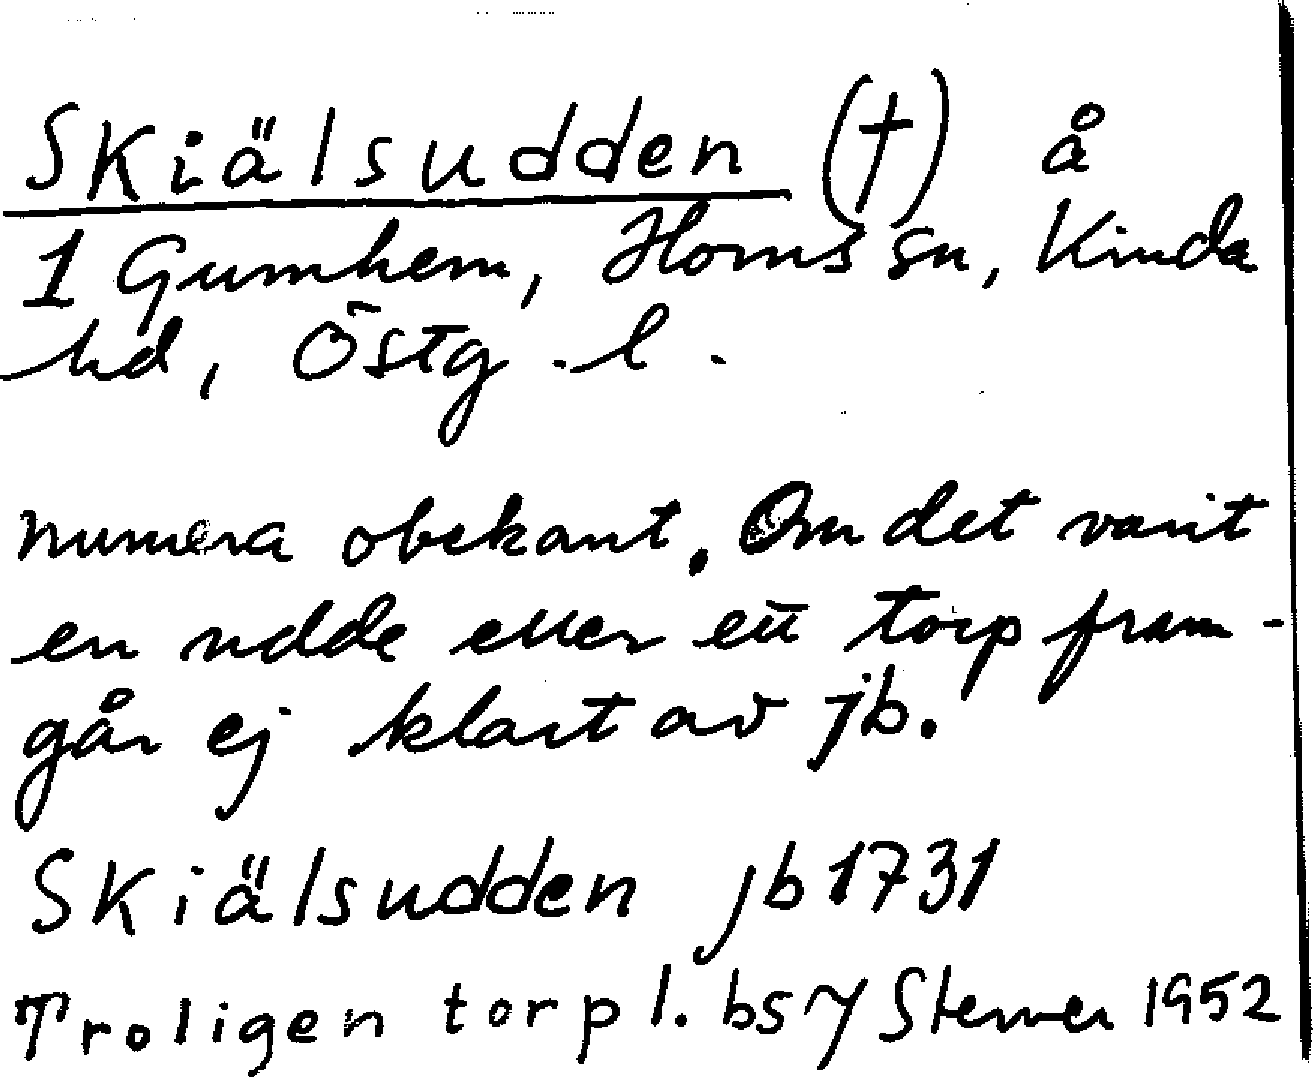 Skiälsudden (†) å
1 Gumhem, Horns sn, Kinda
hd, Östg. l.
numera obekant. Om det varit
en udde eller ett torp fram-
går ej klart av jb.
Skiälsudden jb 1731
Troligen torp l. bs Sterner 1952